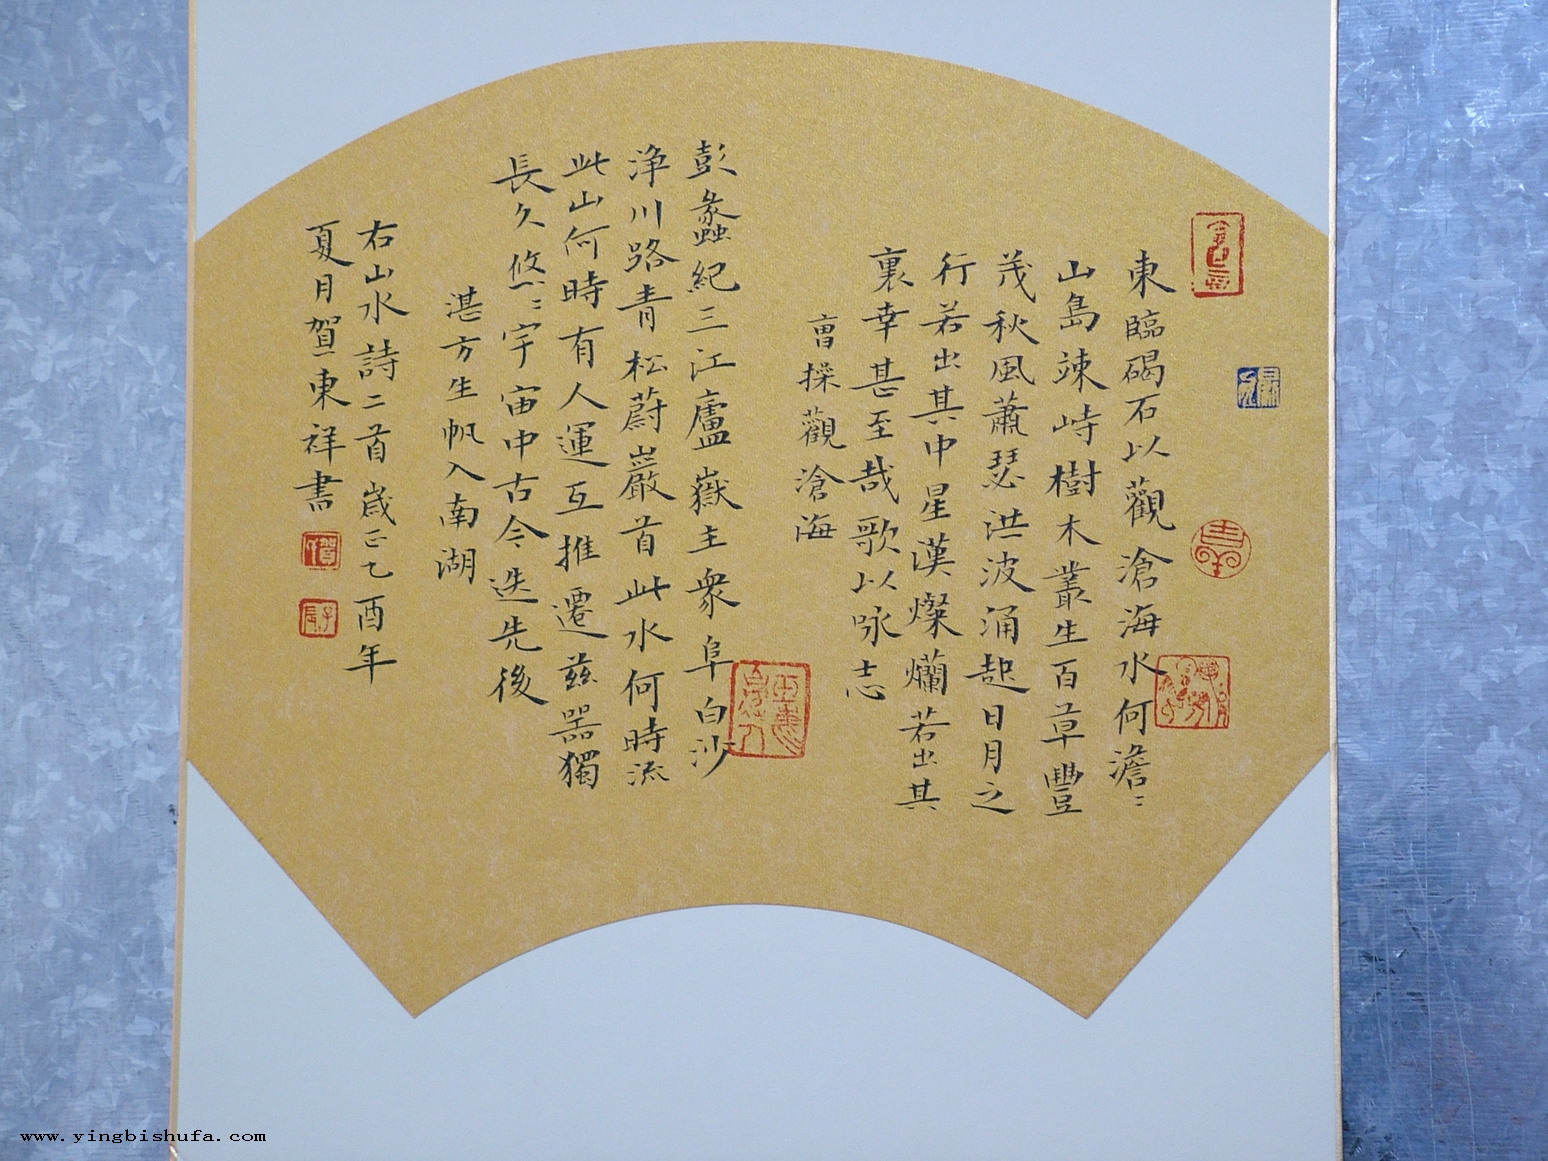 東臨碣石以觀滄海水何澹〻
山島竦峙樹木叢生百草豐
茂秋風蕭瑟洪波涌起日月之
行若出其中星漢燦爛若出其
裏幸甚至哉歌以咏志
曹操觀滄海
彭蠡紀三江廬嶽主衆阜白沙
淨川路青松蔚巖首此水何時流
此山何時有人運互推遷茲器獨
長久悠〻宇宙中古今迭先後
湛方生帆入南湖
右山水詩二首歲正乙酉年
夏月賀東祥書
www.yingbishufa.com